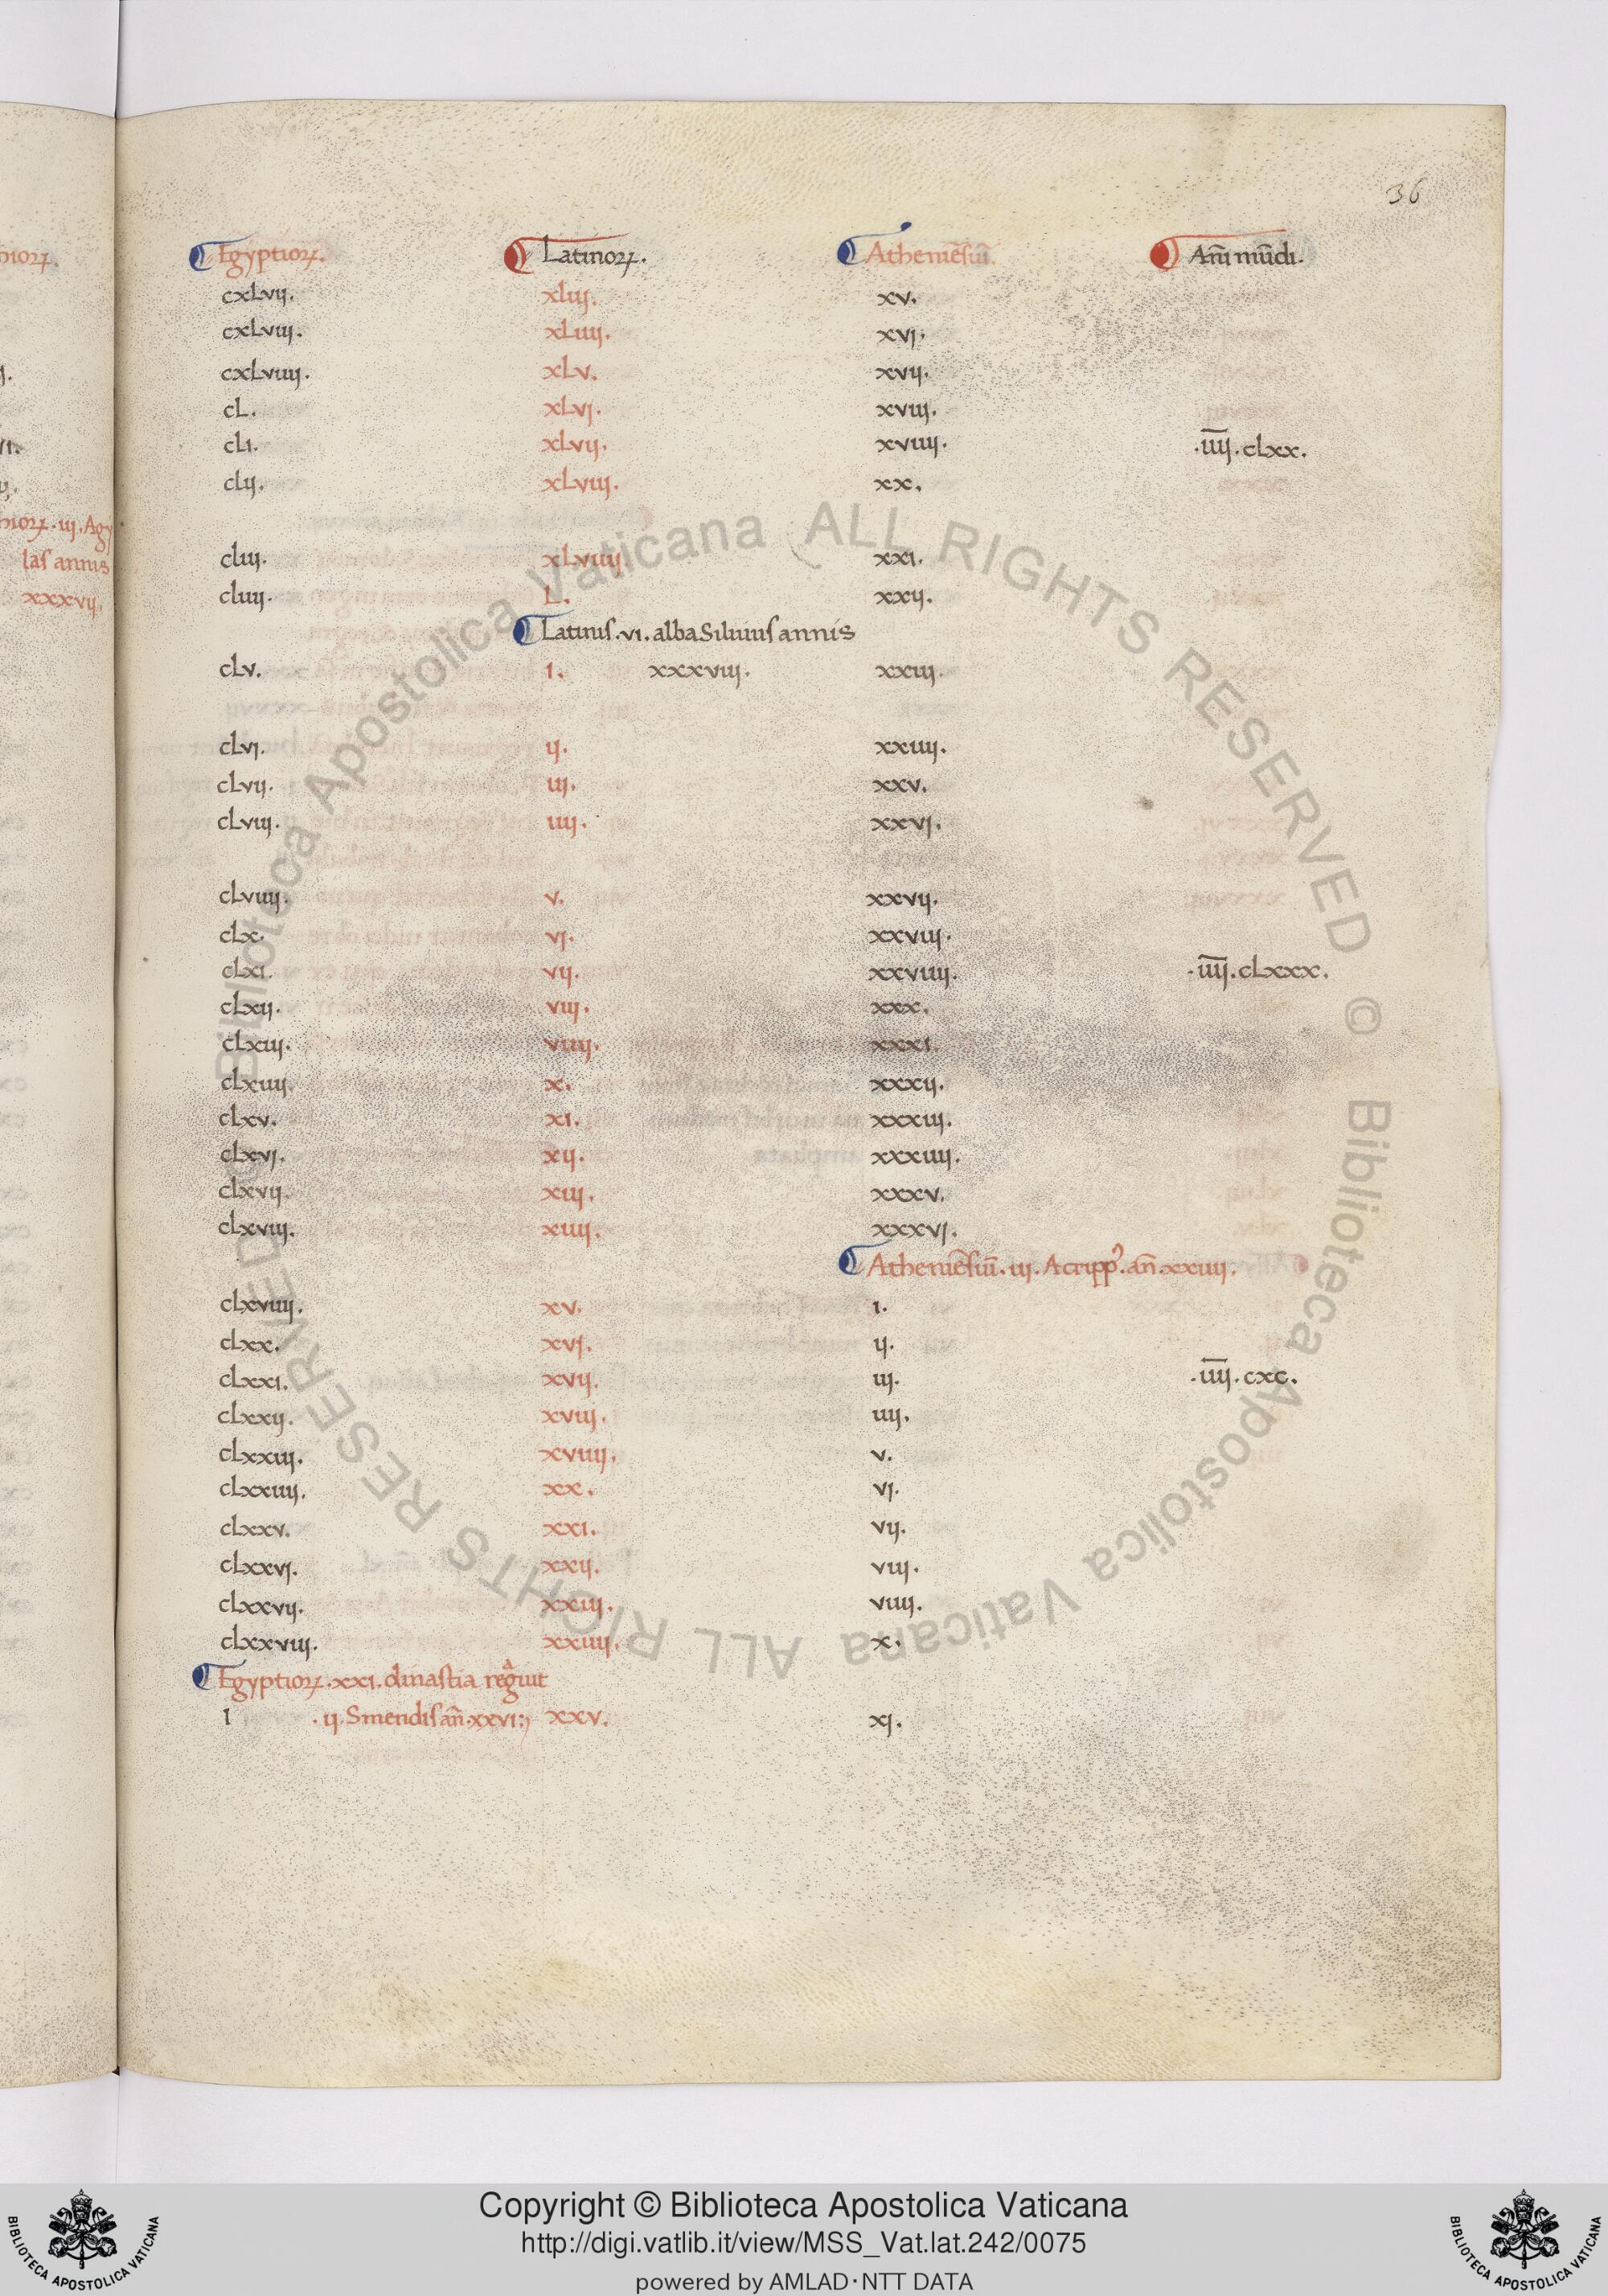 36
Egyptioꝝ. Latinoꝝ. Atheniēsiū. Añi mūdi.
cxlvij. xliij. xv.
cxlviij. xliiij. xvj.
cxlviiij. xlv. xvij.
cl. xlvj. xviij.
clı. xlvij. xviiij. .iiij̅.clxx.
clij. xlviij. xx.
cliij. xlviiij. xxı.
cliiij. L. xxij.
Latinis.vı.alba Siluius annis
clv. ı. xxxviij. xxiij.
clvj. ij. xxiiij.
clvij. iij. xxv.
clviij. iiij. xxvj.
clviiij. v. xxvij.
clx. vj. xxviij.
clxı. vij. xxviiij. .iiij̅.clxxx.
clxij. viij. xxx.
clxiij. viiij. xxxı.
clxiiij. x. xxxij.
clxv. xı. xxxiij.
clxvj. xij. xxxiiij.
clxvij. xiij. xxxv.
clxviij. xiiij. xxxvj.
Atheniēsiū.iij. Acripp᾿.añ.xxiiij.
clxviiij. xv. ı.
clxx. xvj. ij.
clxxı. xvij. iij. .iiij̅.cxc.
clxxij. xviij. iiij.
clxxiij. xviiij. v.
clxxiiij. xx. vj.
clxxv. xxı. vij.
clxxvj. xxij. viij.
clxxvij. xxiij. viiij.
clxxviij. xxiiij. x.
Egyptioꝝ.xxı.dinastia regͣuit
ı .ij.Smendis añ.xxvı. xxv. xj.
hioꝝ.iij.Agy
las annis
xxxvij.
Biblioteca Apostolica Vaticana ALL RIGHTS RESERVED © Biblioteca Apostolica Vaticana ALL RIGHTS RESERVED ©
BIBLIOTECA APOSTOLICA VATICANA
Copyright © Biblioteca Apostolica Vaticana
http://digi.vatlib.it/view/MSS_Vat.lat.242/0075
powered by AMLAD·NTT DATA
BIBLIOTECA APOSTOLICA VATICANA